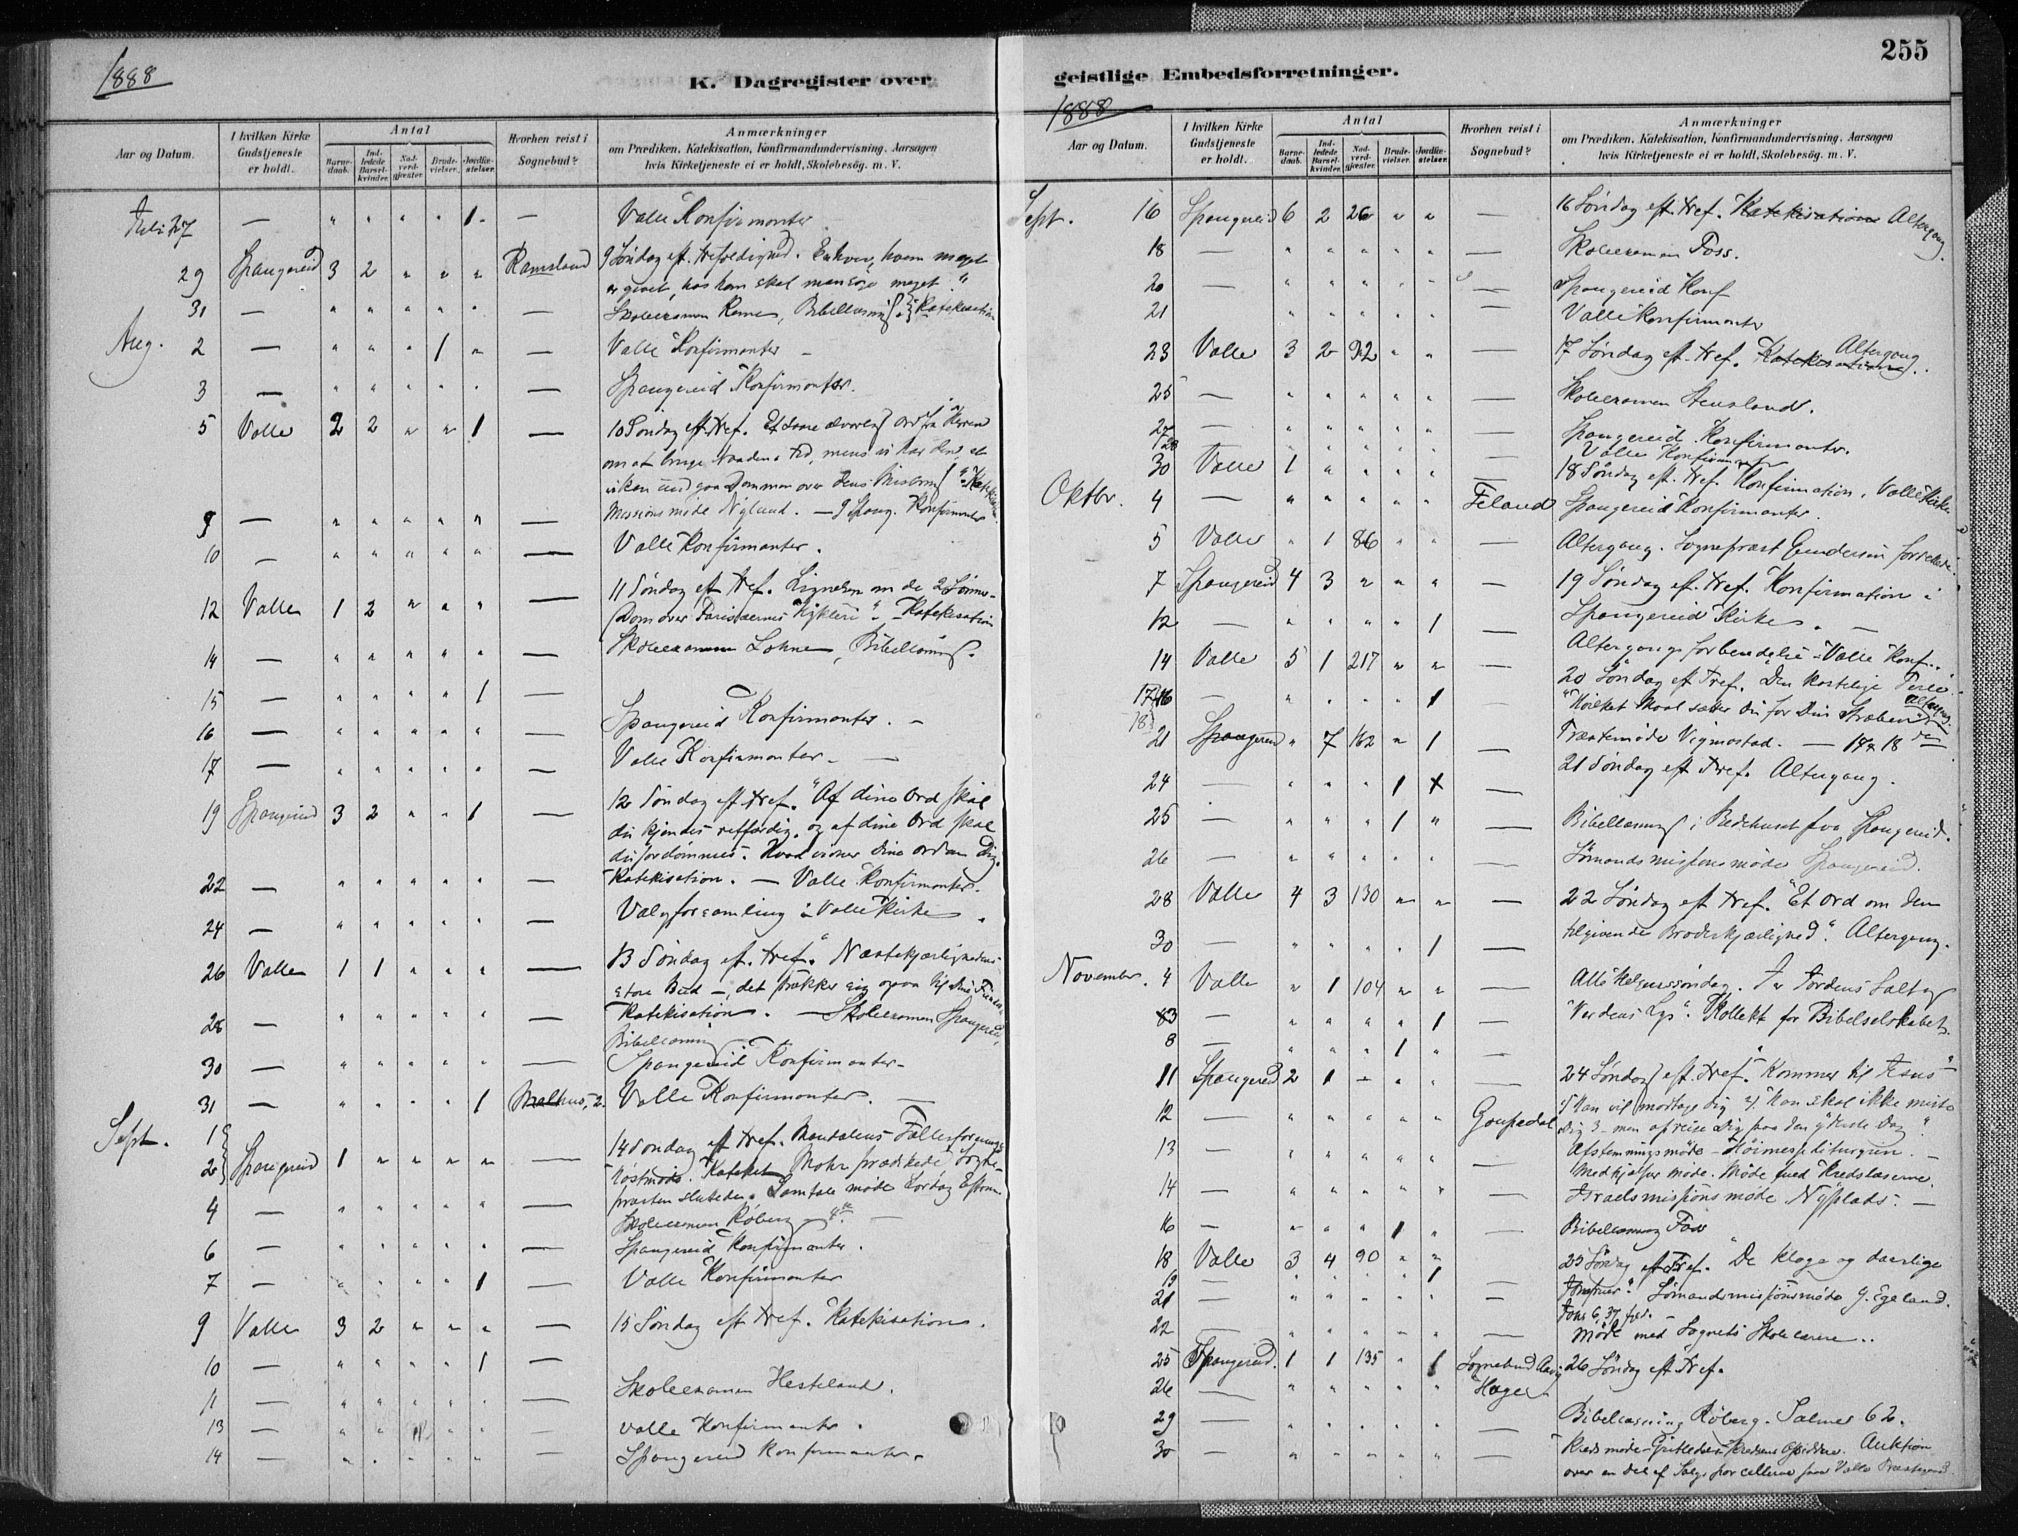 1888
K. Dagregister over
Aar og Datum.
I hvilken Kirke Gudstjeneste er holdt.
Antal
Barnedaab.
Indledede Barselkvinder.
Nadverdgjæster.
Brudevielser.
Jordfæstelser.
Hvorhen reist i Sognebud?
Anmærkninger
om Prædiken, Katekisation, Konfirmandundervisning, Aarsagen
hvis Kirketjeneste ei er holdt, Skolebesög. m. V.
Juli 27 — " " " " 1 — Valle Konfirmanter
29 Spangereid 3 2 " " " Ramsland 9 Søndag eft. Trefoldighed. Enhver, hvem meget
er givet, hos ham skal man søge meget."
31 — " " " " " — Skoleexamen , Bibellæsning Katekisation
Aug. 2 — " " " 1 " — Valle Konfirmanter —
3 — " " " " " — Spangereid Konfirmanter.
5 Valle 2 2 " " 1 — 10 Søndag eft. Tref. Et saare alvorlig Ord fra Herren
om at bruge Naadens Tid, mens vi har den, at
vi kan undgaa Dommen over dens Misbrug". Katekisation.
Missionsmøde Nylund. — 9 Spang. Konfirmanter
9 — " " " " " —
10 — " " " " " — Valle Konfirmanter.
12 Valle 1 2 " " " — 11 Søndag eft. Tref. Lignelsen om de 2 Sønner—
Dom over Farisæernes Hykleri". Katekisation
14 — " " " " " — Skoleexamen Lohne, Bibellæsning.
15 — " " " " 1 —
16 — " " " " " — Spangereid Konfirmanter. —
17 — " " " " " — Valle Konfirmanter. —
19 Spangereid 3 2 " " 1 — 12 Søndag eft. Tref. "Af dine Ord skal
du kjendes retfærdig, og af dine Ord skal
du fordømmes. Hvad viser dine Ord om Dig.
22 — " " " " " — Katekisation. — Valle Konfirmanter.
24 — " " " " " — Valgforsamling i Valle Kirke.
26 Valle 1 1 " " " — 13 Søndag eft. Tref. "Næstekjærlighedens
store Bud —, det strækker sig ogsaa til Dine Fiender
28 — " " " " " — Katekisation. — Skoleexamen Spangereid,
Bibellæsning
30 — " " " " " — Spangereid Konfirmanter—
31 — " " " " 1 Valle Konfirmanter. —
Sept. 1
2 Spangereid 1 " " " " — 14 Søndag eft. Tref. Mandalens Fællesforenings
Høstmøde. Kateket Mohr prædikede, Sogne-
præsten sluttede. Samtale møde Lørdag Efterm.
4 — " " " " " — Skoleexamen Røberg
6 — " " " " " — Spangereid Konfirmanter.
7 — " " " " 1 — Valle Konfirmanter
9 Valle 3 2 " " " — 15 Søndag eft. Tref. Katekisation.
10 — " " " " 1 —
11 — " " " " " — Skoleexamen Hesteland.
13 — " " " " " — Valle Konfirmanter.
14 — " " " " " — Spangereid Konfirmanter.
255
geistlige Embedsforretninger.
1888
Aar og Datum.
I hvilken Kirke Gudstjeneste er holdt.
Antal
Barnedaab.
Indledede Barselkvinder.
Nadverdgjæster.
Brudevielser.
Jordfæstelser.
Hvorhen reist i Sognebud?
Anmærkninger
om Prædiken, Katekisation, Konfirmandundervisning, Aarsagen
hvis Kirketjeneste ei er holdt, Skolebesög. m. V.
Sept. 16 Spangereid 6 2 26 " " — 16 Søndag eft. Tref. Katekisation Altergang.
18 — " " " " " — Skoleexamen Foss.
20 — " " " " " — Spangereid Konf
21 " " " " " — Valle Konfirmanter
23 Valle 3 2 92 " " — 17 Søndag eft. Tref. Katekisation Altergang.
25 — " " " " " — Skoleexamen Stusland.
27 — " " " " " — Spangereid Konfirmanter.
28 " " " " " Valle Konfirmanter
30 Valle 1 " " " " — 18 Søndag eft. Tref. Konfirmation i Valle Kirke
Oktbr. 4 — " " " " " Feland Spangereid Konfirmanter.
5 Valle " 1 86 " " — Altergang. Sognepræst Gundersen forrettede.
7 Spangereid 4 3 " " " — 19 Søndag eft. Tref. Konfirmation i
Spangereid Kirke. —
12 — " " " " 1 — Altergangsforberedelse i Valle Konf.
14 Valle 5 1 217 " " — 20 Søndag eft. Tref. "Den kostelige Perle—
"Hvilket Maal sætter Du for Din Stræben." Altergang.
17 16 — " " " " 1 — Præstemøde Vigmostad. — 17 & 18 de
18
21 Spangereid " 7 162 " 1 — 21 Søndag eft. Tref. Altergang.
24 — " " " 1 —
25 — " " " 1 " — Bibellæsning i Bedehuset paa Spangereid.
26 — " " " " " — Sømandsmissionsmøde Spangereid.
28 Valle 4 3 130 " " — 22 Søndag eft. Tref. "Et Ord om den
tilgivende Broderkjærlighed". Altergang.
30 — " " " " 1 —
November. 4 Valle " 1 104 " " — Alle Helgenssøndag. "I er Jordens Salt og
Verdens Lys". Kollekt for Bibelselskabet.
3 — " " " " 1 —
8 — " " " 1 " —
11 Spangereid 2 1 — " " 24 Søndag eft. Tref. "Kommer til Jesus—
1) Han vil modtage Dig 2) Han skal ikke miste
Dig 3— men opreise Dig paa den yderste Dag".
12 — " " " " " Gaupedal
13 — " " " " " — Afstemningsmøde —
Medhjælper møde. Møde med Kredslærerne.
14 — " " " " " — Israelsmissions møde Nyplads. —
16 — " " " 1 " — Bibellæsning Foss
18 Valle 3 4 90 " " — 25 Søndag eft. Tref. "De kloge og daarlige
Jomfruer". Sømandsmissionsmøde G. Egeland.
19 — " " " " 1 —
21 — " " " " " — Joh. 6,37 fgd.
22 — " " " " " — Møde med Sognets Skolelærere..
25 Spangereid. 1 1 135 " 1 Sognebud 26 Søndag eft. Tref.
26 — " " " " "
29 — " " " " " Bibellæsning Røberg. Salme 62.
30 — " " " " " Auktion
over en del af paa Valle Præstegaard